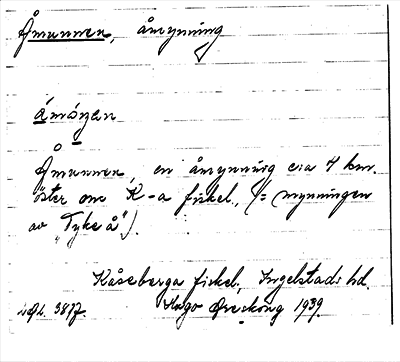 Åmunnen, åmynning
åmönen
Åmunnen, en åmynning c:a 4 km.
öster om K-a fiskel., (= mynningen
av "Tyke å").
Kåseberga fiskel., Ingelstads hd.
3877. Hugo Areskoug 1939.